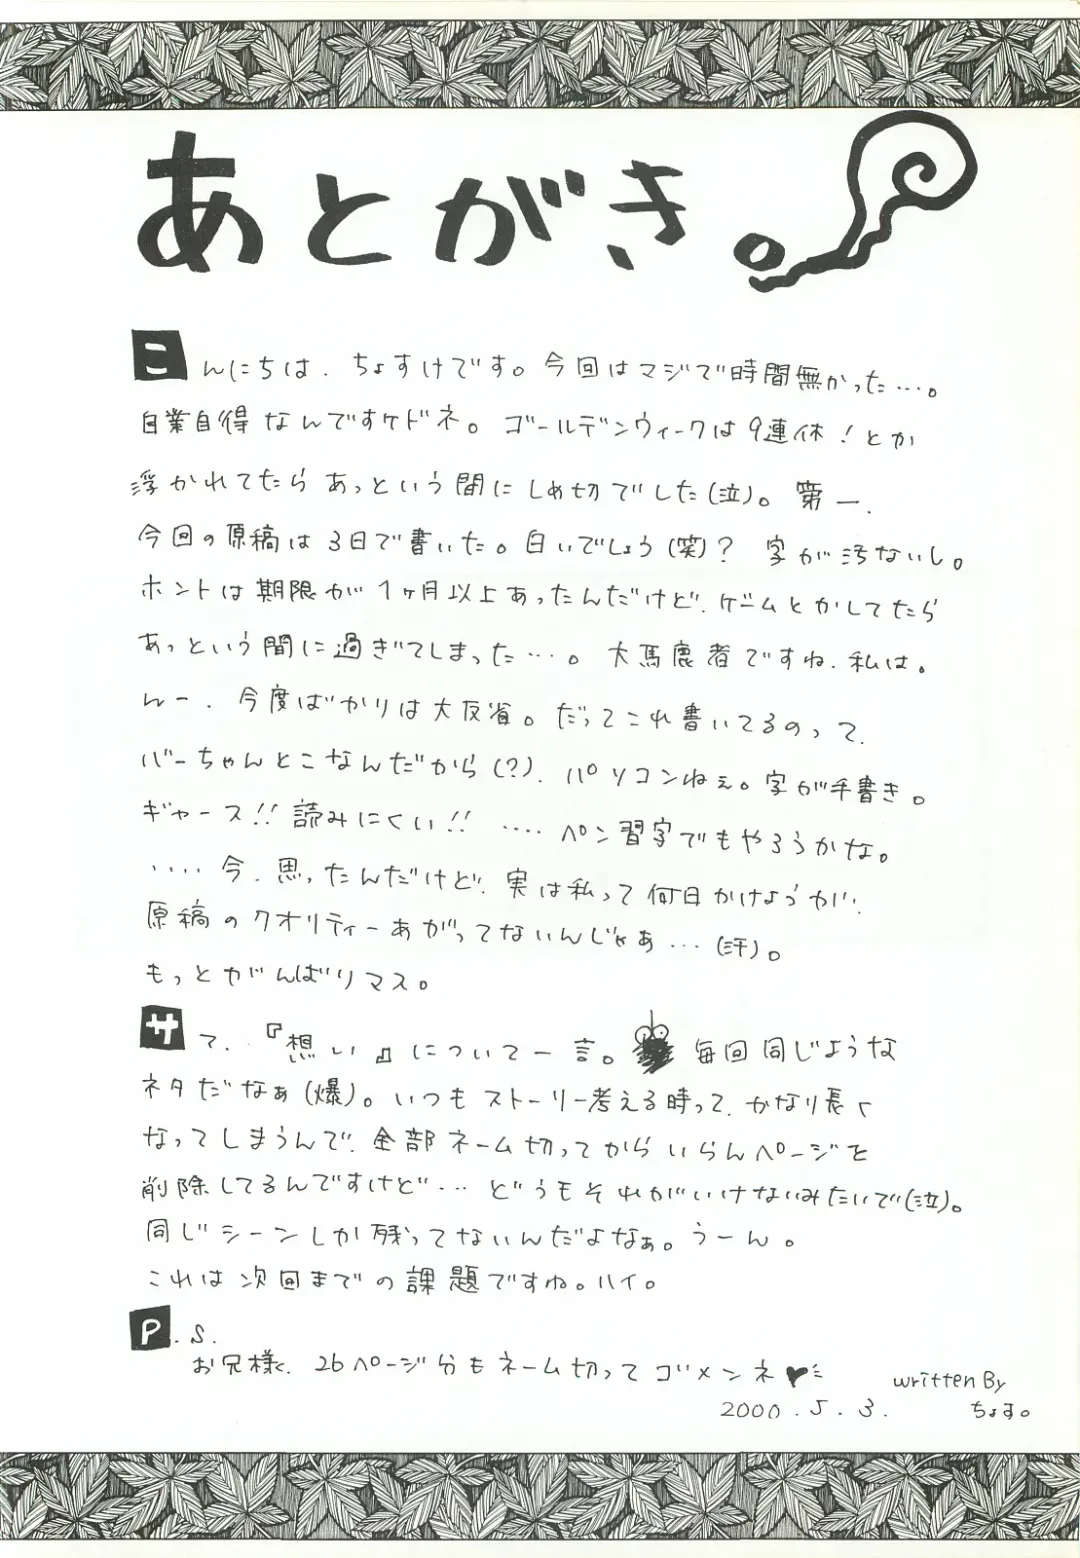 あとがき。
こんにちは、ちょすけです。今回はマジで時間無かった…。
自業自得なんですケドネ。ゴールデンウィークは9連休!とか
浮かれてたらあっという間にしめ切でした(泣)。第一、
今回の原稿は3日で書いた。白いでしょう(笑)? 字が汚ないし。
ホントは期限が1ヶ月以上あったんだけど、ゲームとかしてたら
あっという間に過ぎてしまった…。大馬鹿者ですね、私は。
んー、今度ばかりは大反省。だってこれ書いてるのって、
バーちゃんとこなんだから(?)、パソコンねぇ。字が手書き。
ギャース!!読みにくい!! ‥‥ペン習字でもやろうかな。
‥‥今、思ったんだけど、実は私って何日かけようが、
原稿のクオリティーあがってないんじゃあ…(汗)。
もっとがんばりマス。
サて、『想い』について一言。毎回同じような
ネタだなぁ(爆)。いつもストーリー考える時って、かなり長く
なってしまうんで、全部ネーム切ってからいらんページを
削除してるんですけど… どうもそれがいけないみたいで(泣)。
同じシーンしか残ってないんだよなぁ。うーん。
これは次回までの課題ですね。ハイ。
P.S.
お兄様、26ページ分もネーム切ってゴメンネ♥
written By
2000.5.3. ちょす。